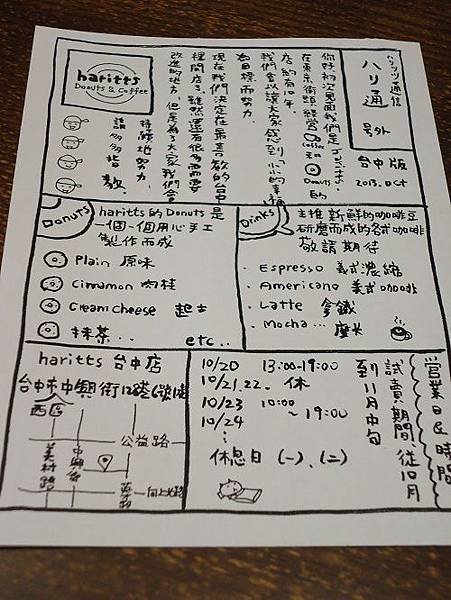 ハリッツ通信
ハリ通
号外
台中版
2013. Oct
haritts
Donuts & Coffee
你好,初次見面我們是
在東京街頭經營Coffee和Donuts的
店約有10年
我們會以讓大家感到"小小的幸福"
為目標而努力.
現在我們決定在最喜歡的台中
裡開店了.雖然還有很多需要
改進的地方,但是為了大家我們會
持續地努力.
請多多指教.
Donuts
haritts的Donuts是
一個一個用心手工
製作而成
Plain 原味
Cinnamon 肉桂
Creamcheese 起士
抹茶..
etc..
Drinks
主推新鮮的咖啡豆
研磨而成的各式咖啡
敬請期待
・Espresso 義式濃縮
・Americano 美式咖啡
・Latte 拿鐵
・Mocha... 摩卡
haritts 台中店
台中市中興街
西區
公益路
美村路
中興街
向上北路
營業日&時間
試賣期間,從10月
到11月中旬
10/20 13:00-19:00
10/21.22. 休
10/23 10:00
10/24 ~19:00
休息日 (一)、(二)